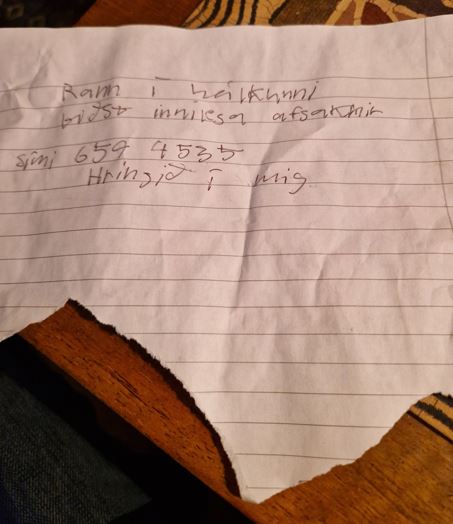 Rann í hálkunni
biðst inniksa afsakhir
sími 659 4535
Hringið í mig